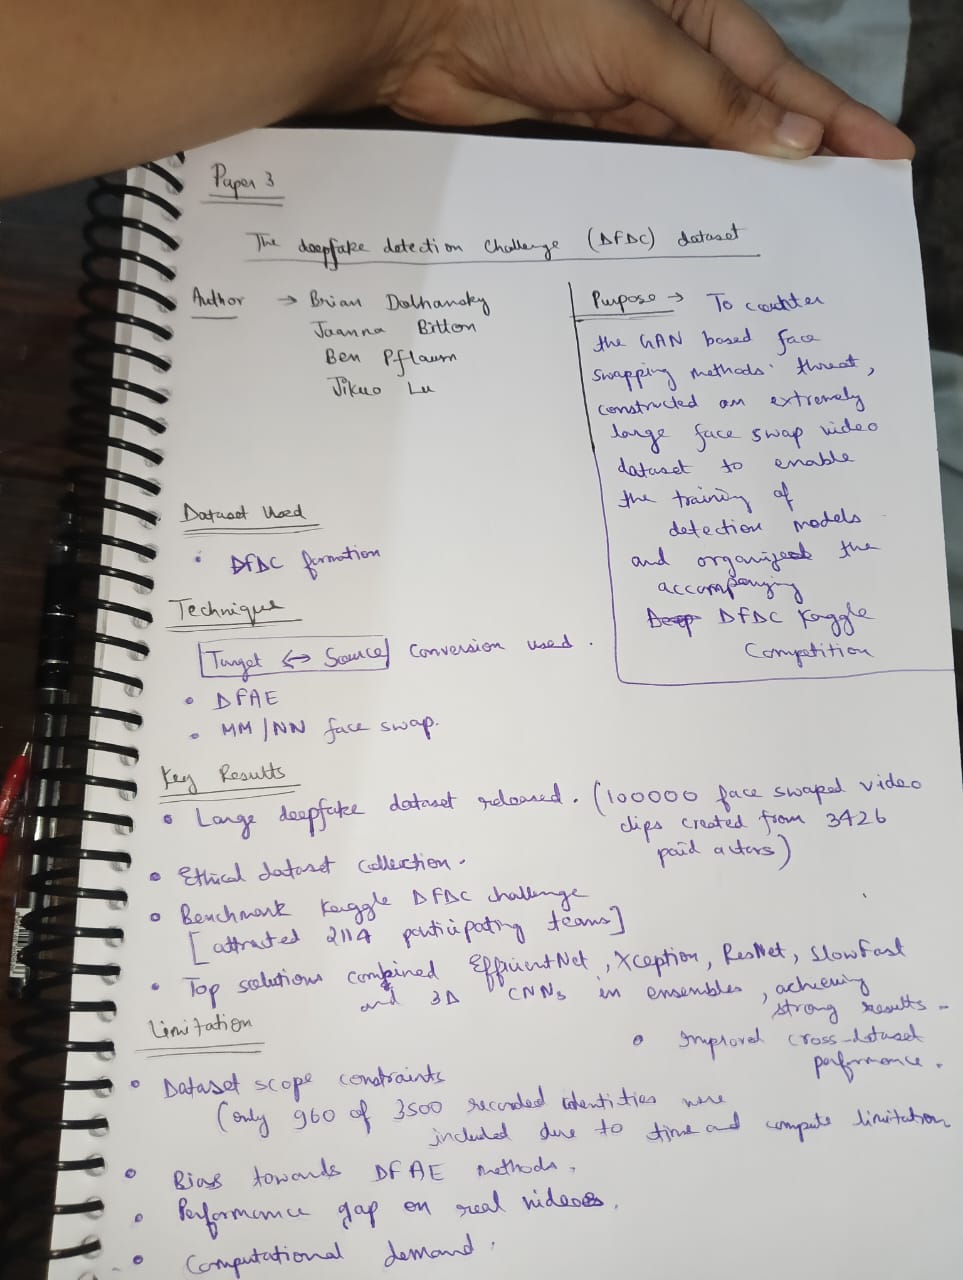 Paper 3
The deepfake detection challenge (DFDC) dataset
Author → Brian Dolhansky
Joanna Bitton
Ben Pflaum
Jikuo Lu
Purpose → To counter
the GAN based face
swapping methods' threat,
constructed an extremely
large face swap video
dataset to enable
the training of
detection models
and organized the
accompanying
DFDC Kaggle
Competition
Dataset Used
• DFDC formation
Technique
Target ↔ Source conversion used.
• DFAE
• MM/NN face swap.
Key Results
• Large deepfake dataset released. (100000 face swaped video
clips created from 3426
paid actors)
• Ethical dataset collection.
• Benchmark Kaggle DFDC challenge
[attracted 2114 participating teams]
• Top solutions combined EfficientNet, Xception, ResNet, SlowFast
and 3D CNNs in ensembles, achieving
strong results.
• Improved cross-dataset
performance.
Limitation
• Dataset scope constraints
(only 960 of 3500 recorded identities were
included due to time and compute limitation
• Bias towards DFAE methods.
• Performance gap on real videos.
• Computational demand.